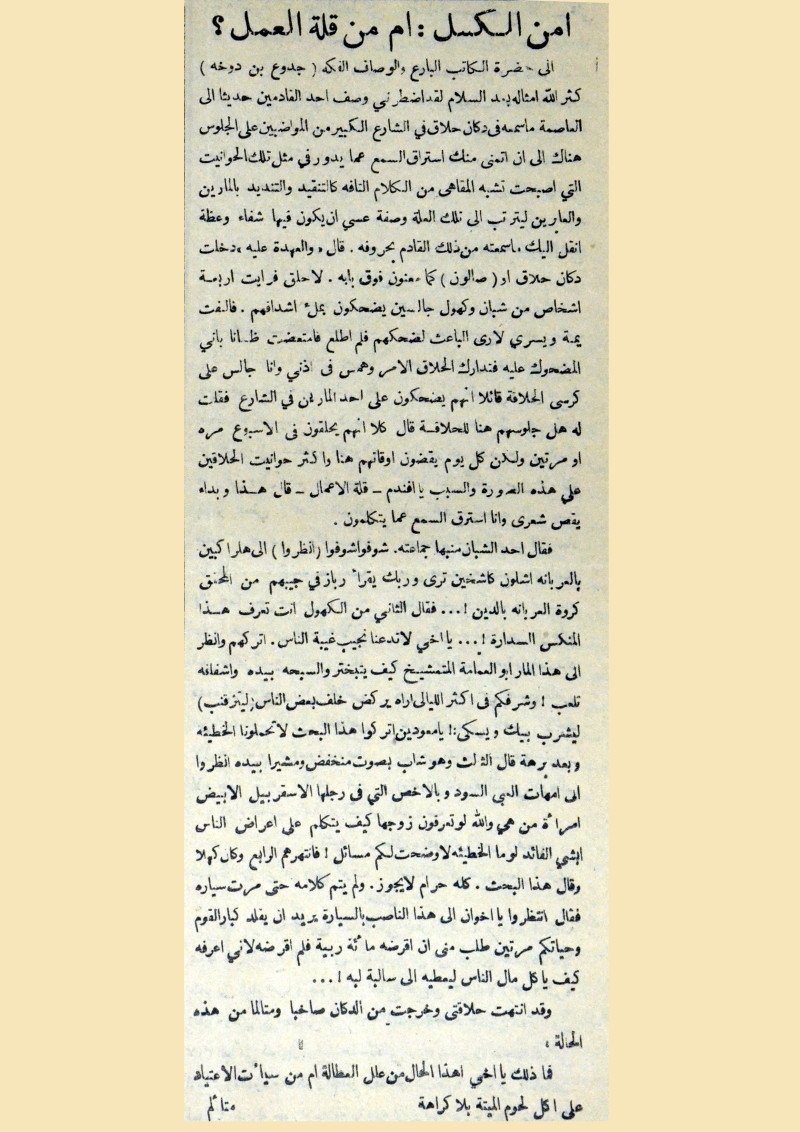 امن الكسل : ام من قلة العمل ؟
الى حضرة الكاتب البارع والوصاف الفكه ( جدوع بن دوخه )
كثر الله امثاله بعد السلام لقد اضطرني وصف احد القادمين حديثا الى
العاصمة ماسمعه في دكان حلاق في الشارع الكبير من المواضبين على الجلوس
هناك الى ان اتمنى منك استراق السمع عما يدور في مثل تلك الحوانيت
التي اصبحت تشبه المقاهى من الكلام التافه كالتنقيد والتنديد بالمارين
والعابرين ليترتب الى تلك العلة وصفة عسي ان يكون فيها شفاء وعظة
انقل اليك ماسمعته من ذلك القادم بحروفه . قال ، والعهدة عليه ، دخلت
دكان حلاق او ( صالون ) كما معنون فوق بابه . لاحلق فرايت اربعة
اشخاص من شبان وكهول جالسين يضحكون بملء اشدافهم . فالتفت
يمة ويسري لارى الباعث لضحكهم فلم اطلع فامتعضت ظانا باني
المضحوك عليه فتدارك الحلاق الامر وهمس فى اذني وانا جالس على
كرسى الحلاقة قائلا انهم يضحكون على احد المارين في الشارع فقلت
له هل جلوسهم هنا للحلاقة قال كلا انهم يحلقون فى الاسبوع مره
او مرتين ولكن كل يوم يقضون اوقاتهم هنا واكثر حوانيت الحلاقين
علي هذه الصورة والسبب يا افندم – قلة الاعمال – قال هذا وبداء
يقص شعرى وانا استرق السمع عما يتكلمون .
فقال احد الشبان منبها جماعته . شوفوا شوفوا ( انظروا ) الى هلراكبين
بالعربانه اشلون كاشخين ترى وربك يقرأ رباز في جيبهم من المحقق
كروة العربانه بالدين ! ... فقال الثاني من الكهول انت تعرف هذا
المنكس السدارة ! ... يا اخي لاتدعنا نجيب غيبة الناس . اتركهم وانظر
الى هذا المار ابو العمامة المتمشيخ كيف يتبختر والسبحه بيده واشفافه
تلعب ! وشرفكم فى اكثر الليالى اراه يركض خلف بعض الناس (ليتزقنب)
ليشرب بيك ويسكى :! يامعودين اتركوا هذا البحث لاتحملونا الخطيئه
وبعد برهة قال الثالث وهو شاب بصوت منخفض ومشيرا بيده انظروا
الى امهات العبي السود وبالاخص التي فى رجلها الاسقربيل الابيض
امرأة من هي والله لو تعرفون زوجها كيف يتكلم على اعراض الناس
ايشي الفائد لوما الخطيئه لاوضحت لكم مسائل ! فانتهرهم الرابع وكان كهلا
وقال هذا البحث . كله حرام لايجوز . ولم يتم كلامه حتى مرت سياره
فقال انتظروا يا اخوان الى هذا الناصب بالسيارة يريد ان يقلد كبار القوم
وحياتكم مرتين طلب منى ان اقرضه مائة ربية فلم اقرضه لاني اعرفه
كيف ياكل مال الناس ليعطيه الى سالبة لبه ! ...
وقد انتهت حلاقتى وخرجت من الدكان صاخبا ومتالما من هذه
الحالة ،
فما ذلك يا اخي اهذا الحال من علل البطالة ام من سيأت الاعتياد
على اكل لحوم الميتة بلا كراهة متألم